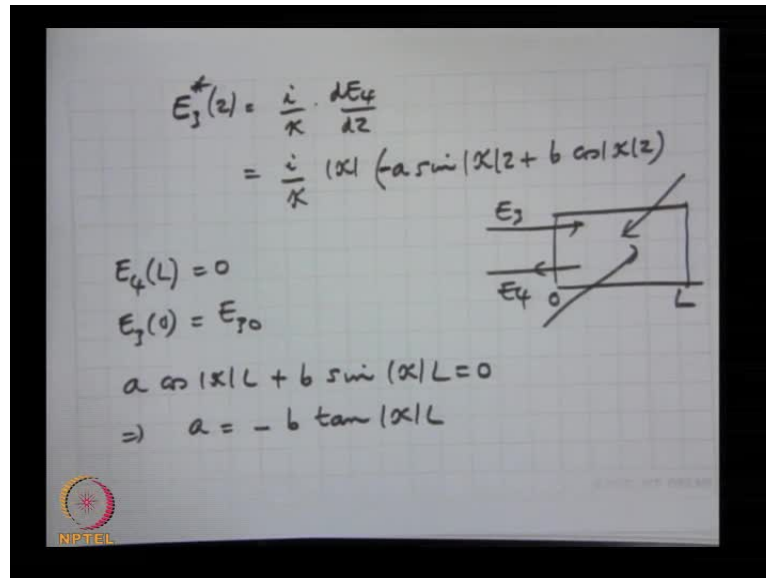 E₃*(z) = i/κ · dE₄/dz
= i/κ |κ| (-a sin|κ|z + b cos|κ|z)
E₃
E₄(L) = 0
E₄ 0 L
E₃(0) = E₃₀
a cos |κ|L + b sin |κ|L = 0
⇒ a = - b tan |κ|L
NPTEL